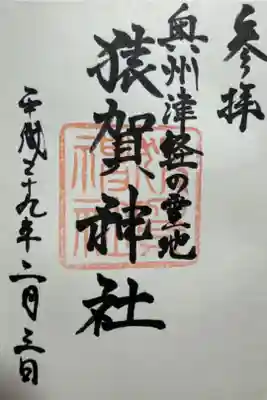 参拝
奥州津軽の霊地
猿賀神社
平成二十九年二月三日